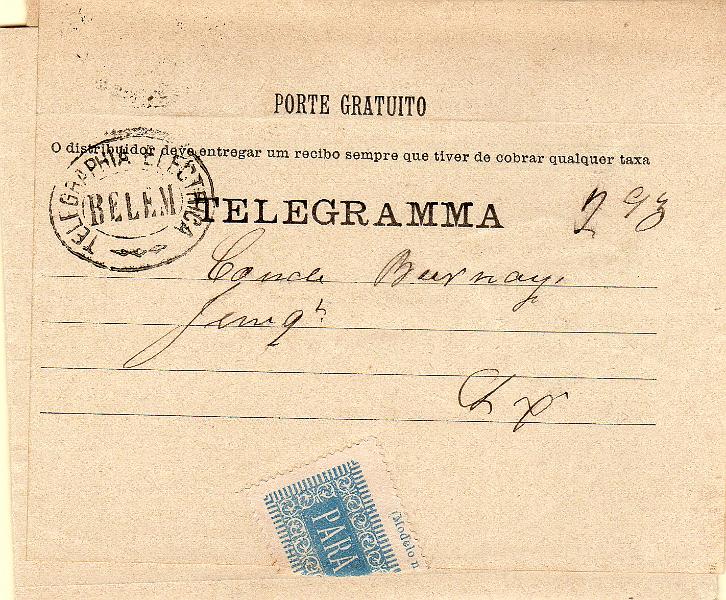 PORTE GRATUITO
O distribuidor deve entregar um recibo sempre que tiver de cobrar qualquer taxa
TELEGRAPHIA ELECTRICA
BELEM
TELEGRAMMA
293
Conde Burnay
Junqª
Lxª
PARA
(Modelo n